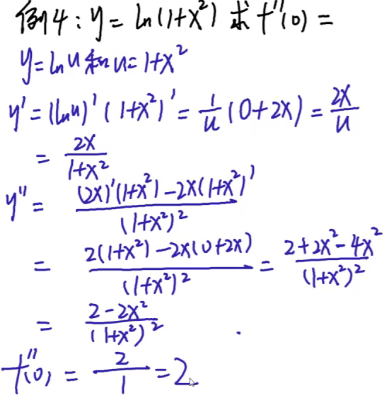 例4：y = ln(1+x²) 求 f''(0) =
y=lnu 和 u=1+x²
y' = (lnu)'(1+x²)' = 1/u (0+2x) = 2x/u
= 2x/(1+x²)
y'' = ((2x)'(1+x²)-2x(1+x²)')/(1+x²)²
= (2(1+x²)-2x(0+2x))/(1+x²)² = (2+2x²-4x²)/(1+x²)²
= (2-2x²)/(1+x²)²
f''(0) = 2/1 = 2